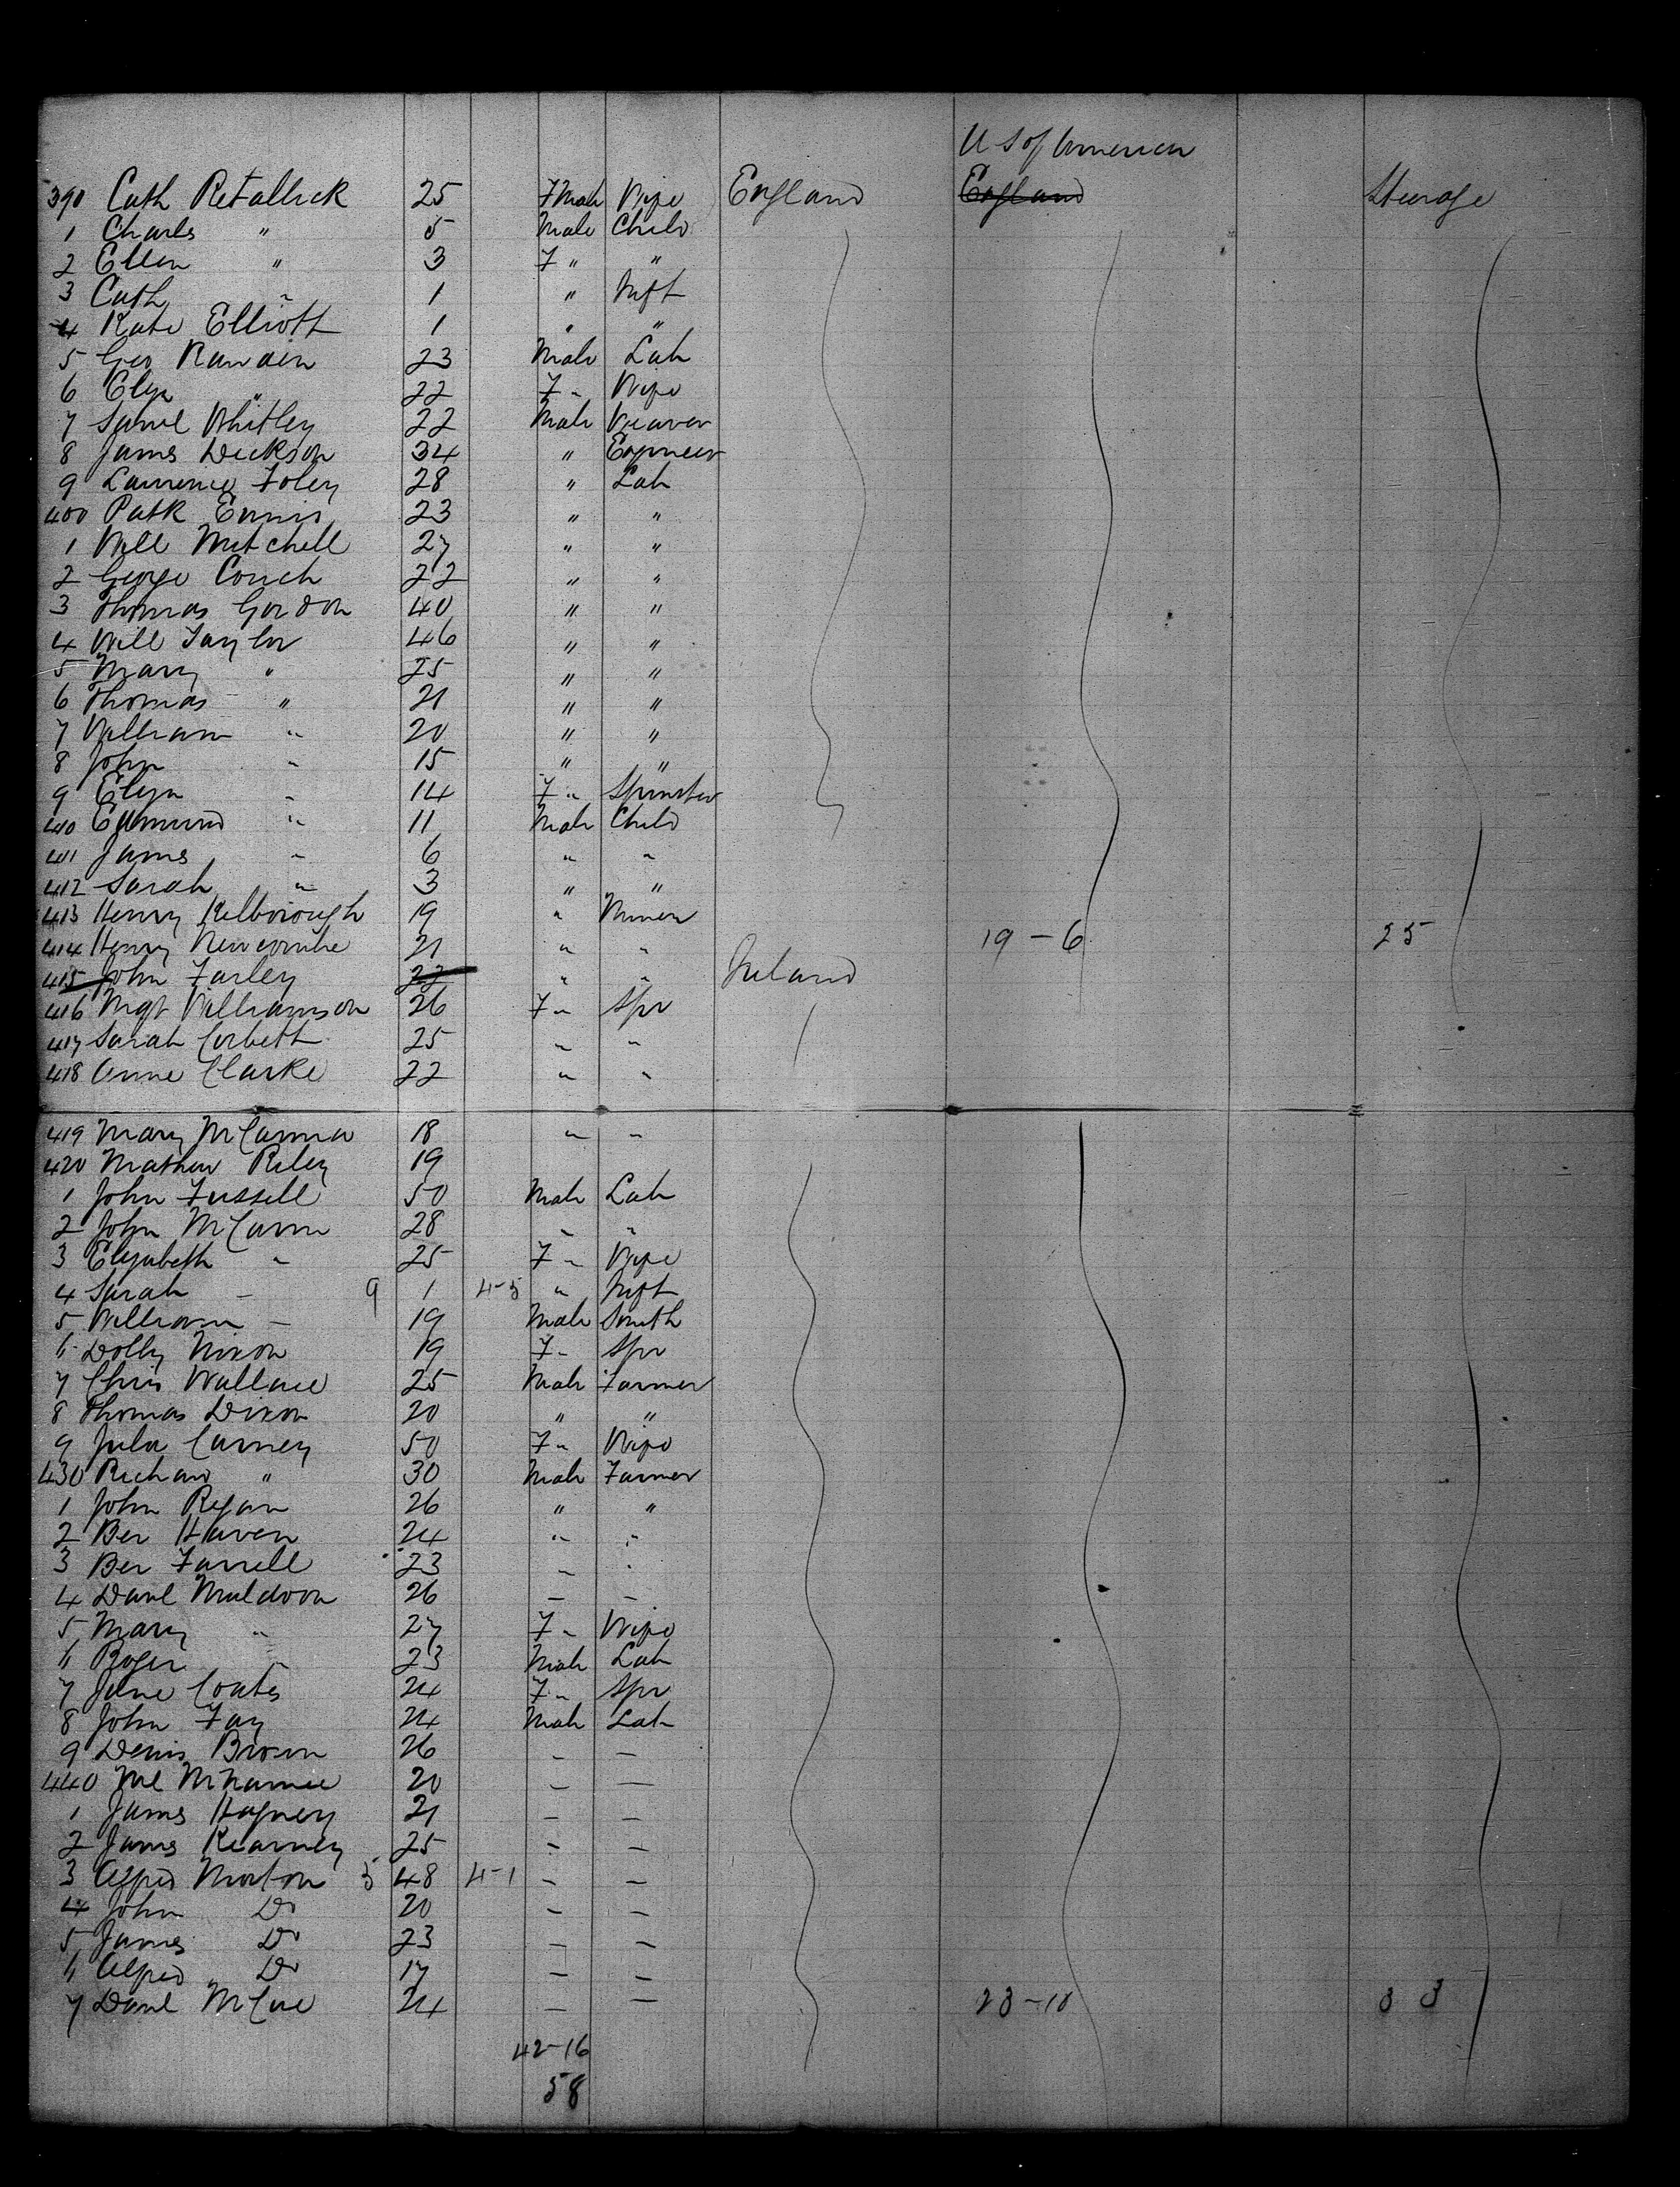 U S of America
390 Cath Retallick 25 FMale Wife England England Steerage
1 Charles " 5 Male Child
2 Ellen " 3 F " "
3 Cath " 1 " Inft
4 Kate Elliott 1 " "
5 Geo 23 Male Lab
6 Eliza " 22 F " Wife
7 Saml Whitley 22 Male Weaver
8 James Dickson 34 " Engineer
9 Lawrence Foley 28 " Lab
400 Patk Ennis 23 " "
1 Will Mitchell 27 " "
2 George Couch 22 " "
3 Thomas Gordon 40 " "
4 Will Taylor 46 " "
5 Mary " 25 " "
6 Thomas " 21 " "
7 William " 20 " "
8 John " 15 " "
9 Eliza " 14 F " Spinster
410 Edmund " 11 Male Child
411 James " 6 " "
412 Sarah " 3 " "
413 Henry Kelborough 19 " Miner
414 Henry Newcombe 21 " " 19-6 25
415 John Farley 22 " " Ireland
416 Mgt Williamson 26 F " Spr
417 Sarah Corbett 25 " "
418 Anne Clarke 22 " "
419 Mary 18 " "
420 Mathew Riley 19
1 John Fussell 50 Male Lab
2 John McCann 28 " "
3 Elizabeth " 25 F " Wife
4 Sarah - 9 1 4-5 " Inft
5 William - 19 Male Smith
6 Dolly Nixon 19 F " Spr
7 Chris Wallace 25 Male Farmer
8 Thomas Dixon 20 " "
9 Julia Carney 50 F " Wife
430 Richard " 30 Male Farmer
1 John Regan 26 " "
2 Ber Haven 24 " "
3 Ber Farrell 23 " "
4 Danl Muldoon 26 - -
5 Mary " 27 F " Wife
6 Roger " 23 Male Lab
7 Jane Coates 24 F " Spr
8 John Fay 24 Male Lab
9 Denis Brown 26 - -
440 Ml McNamee 20 - -
1 James Hagney 21 - -
2 James Kearney 25 - -
3 Alfred Morton 5 48 4-1 - -
4 John Do 20 - -
5 James Do 23 - -
6 Alfred Do 17 - -
7 Danl McCue 24 - - 23-10 33
42-16
58